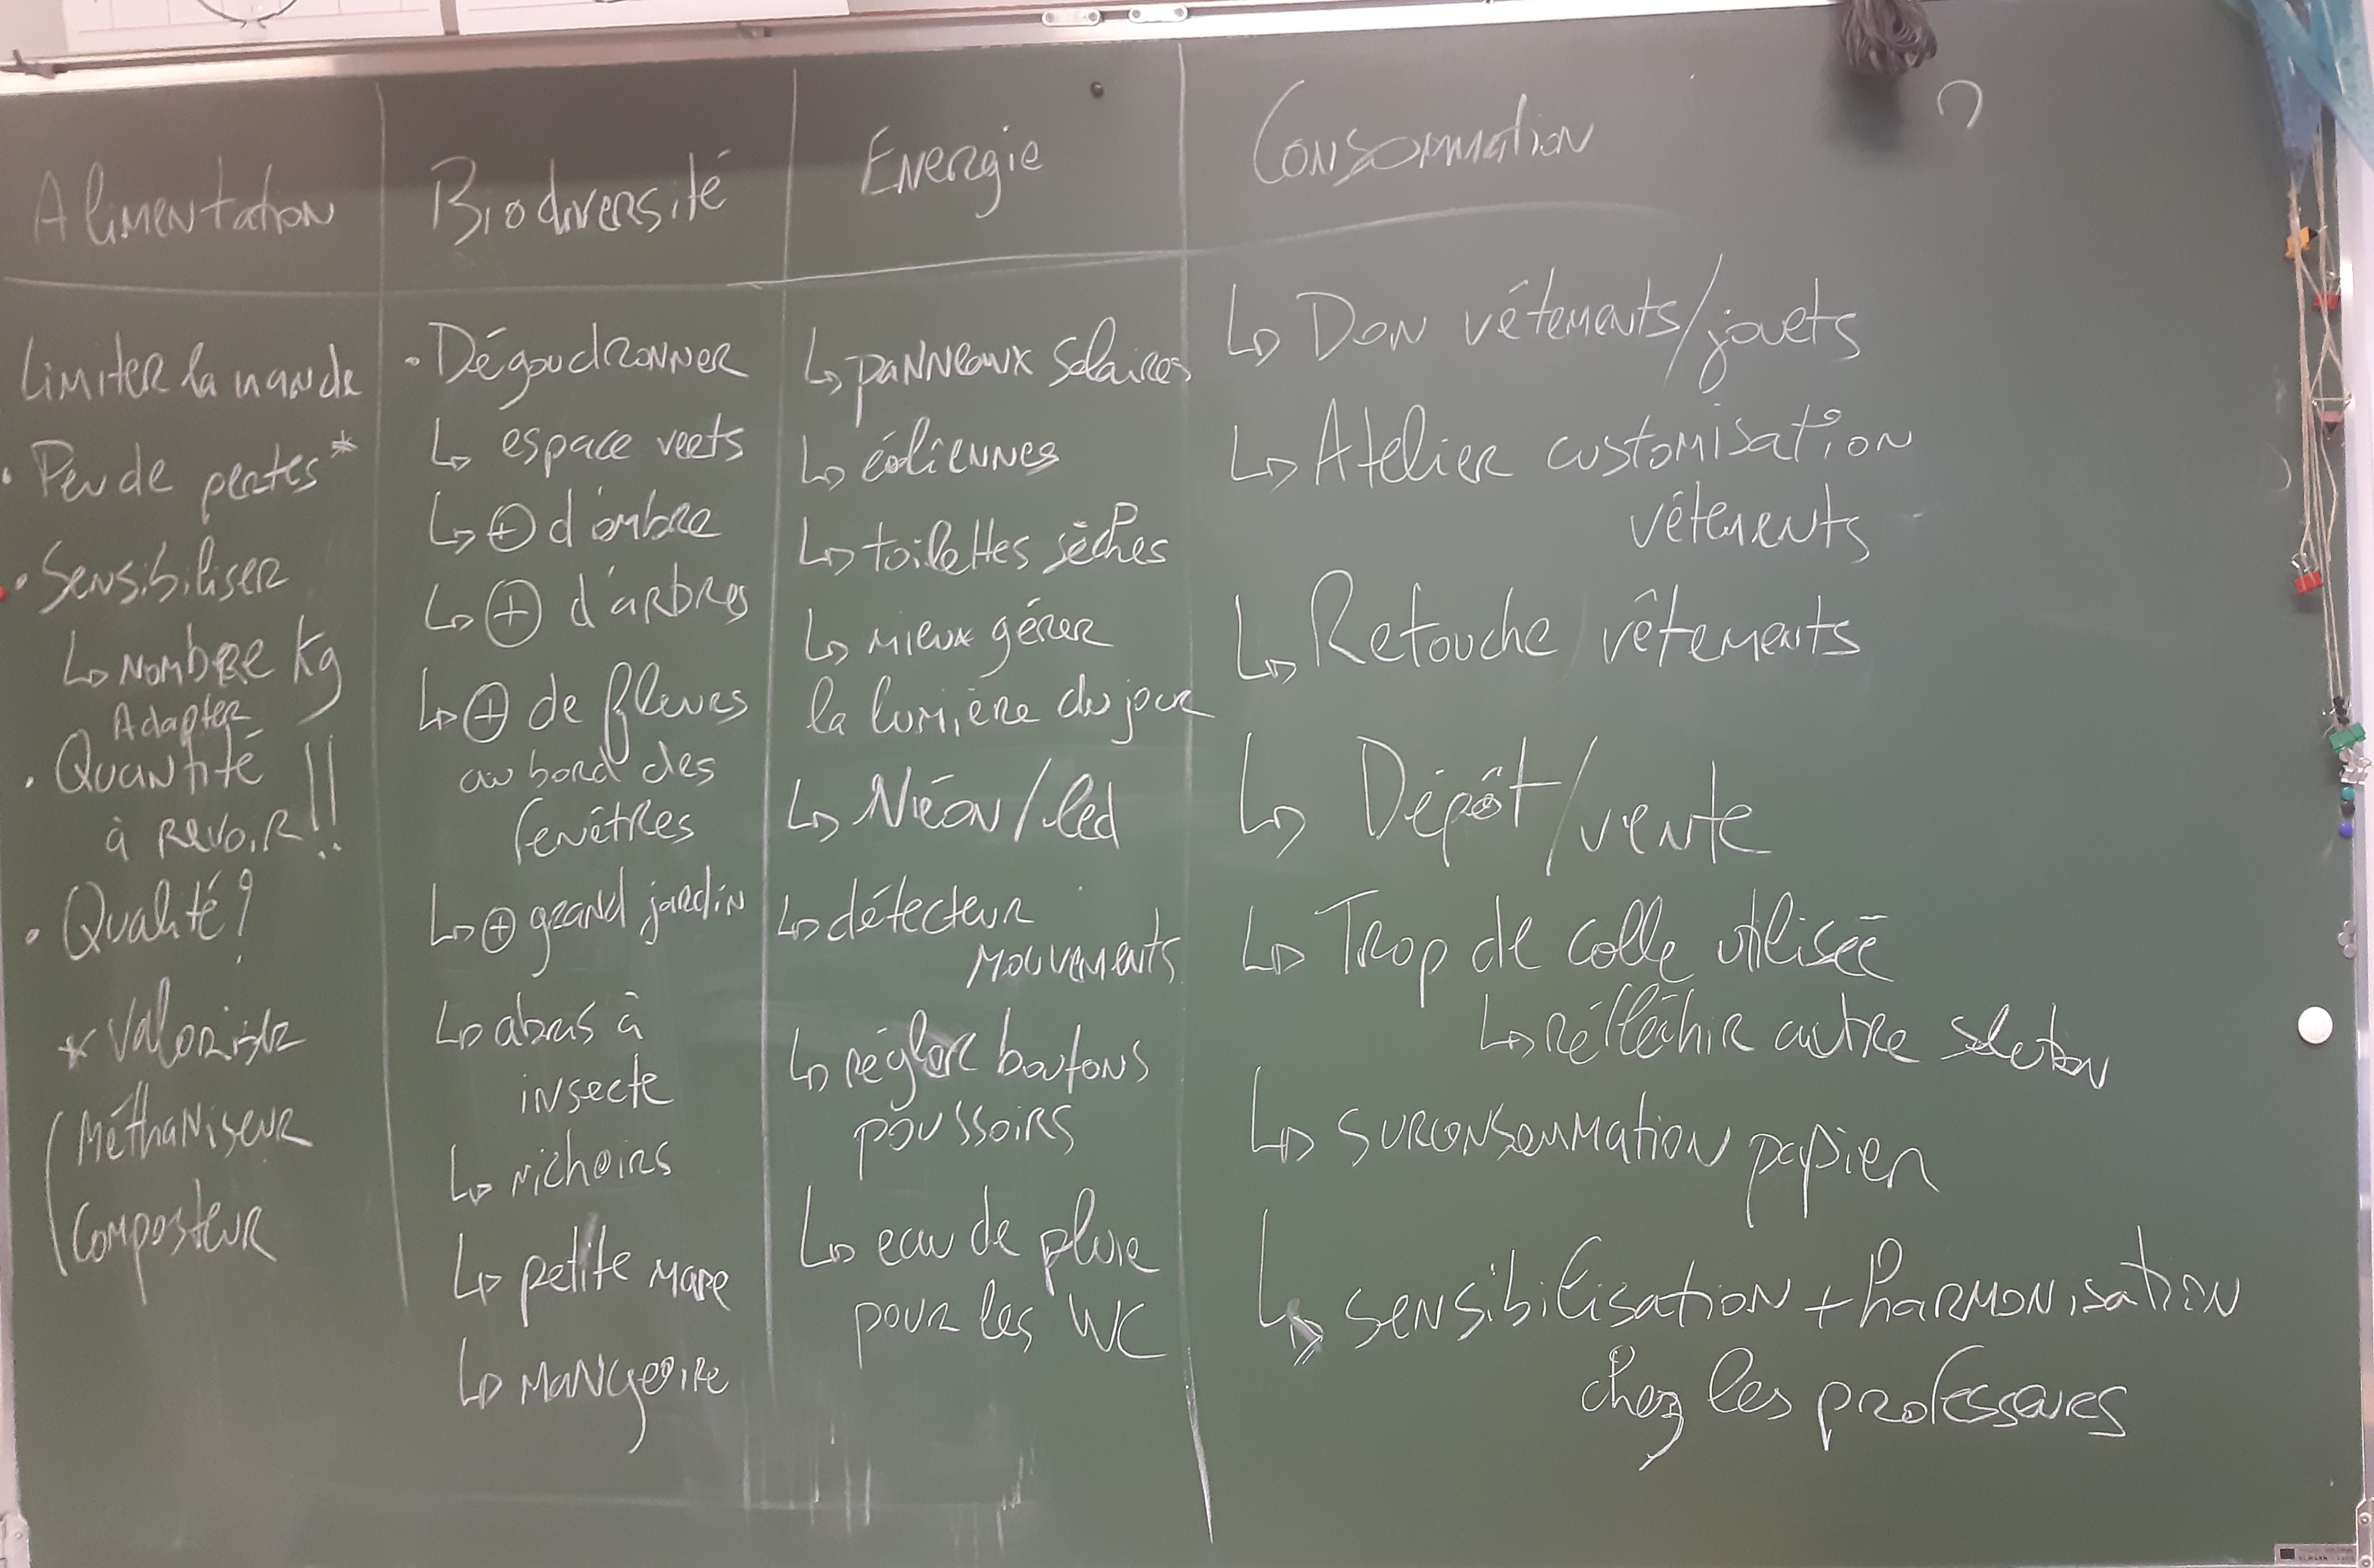 Alimentation
Limiter la viande
• Peu de pertes *
• Sensibiliser
↳ Nombre kg
Adapter
• Quantité !!
à revoir
• Qualité ?
* Valoriser
( Méthaniseur
Composteur
Biodiversité
• Dégoudronner
↳ espace verts
↳ ⊕ d'ombre
↳ ⊕ d'arbres
↳ ⊕ de fleurs
au bord des
fenêtres
↳ ⊕ grand jardin
↳ abris à
insecte
↳ nichoirs
↳ petite mare
↳ mangeoire
Energie
↳ panneaux solaires
↳ éoliennes
↳ toilettes sèches
↳ mieux gérer
la lumière du jour
↳ Néon / led
↳ détecteur
mouvements
↳ régler boutons
poussoirs
↳ eau de pluie
pour les WC
Consommation
↳ Don vêtements/jouets
↳ Atelier customisation
vêtements
↳ Retouche vêtements
↳ Dépôt/vente
↳ Trop de colle utilisée
↳ Réfléchir autre
↳ surconsommation papier
↳ sensibilisation + harmonisation
chez les professeurs